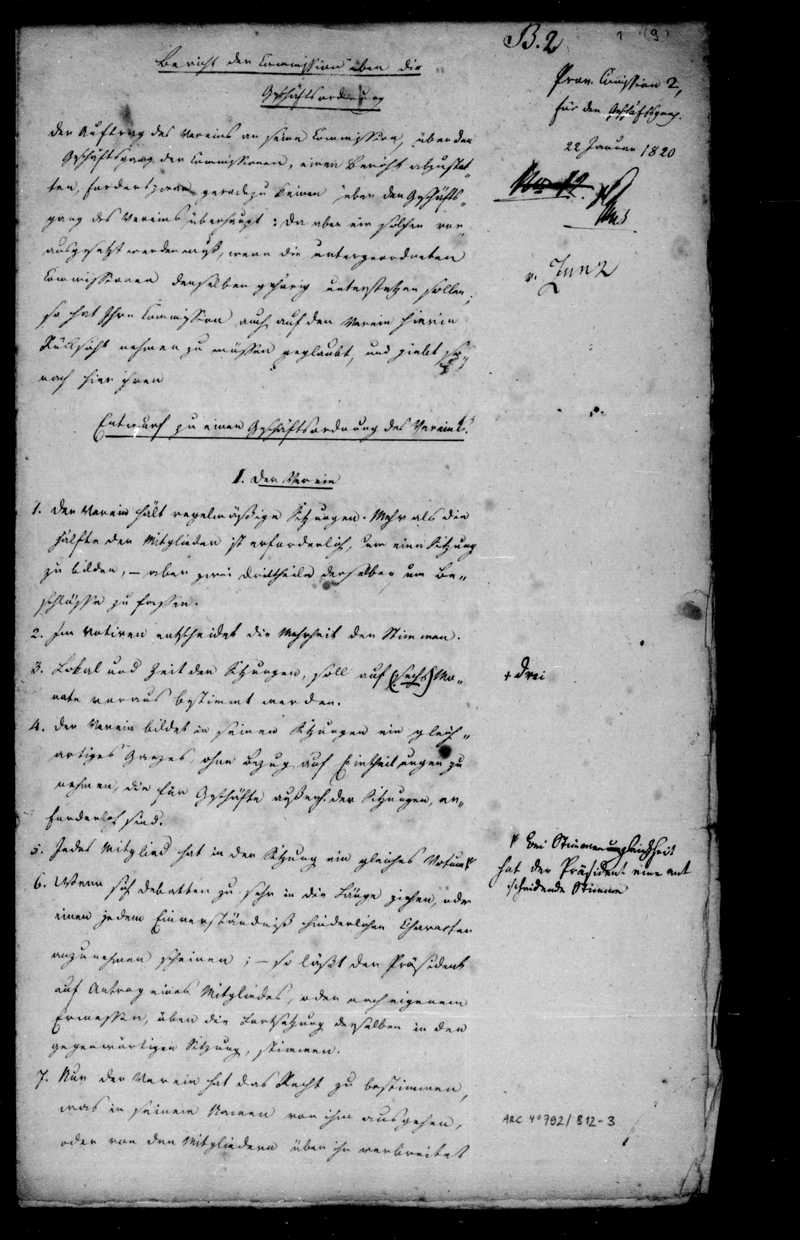 B. 2
Prov. Comission 2,
für den Geschäftsgang.
22 Januar 1820
v. Zunz
Bericht der Commission über die
Geschäftsordnung
Der Auftrag des Vereins an seine Commission, über den
Geschäftsgang der Commissionen, einen Bericht abzustat-
ten, fordert zwar geradezu keinen über den Geschäfts-
gang des Vereins überhaupt: da aber ein solcher vor-
ausgesetzt werden muß, wenn die untergeordneten
Commissionen denselben gehörig unterstützen sollen;
so hat Ihre Commission auch auf den Verein hierin
Rücksicht nehmen zu müssen geglaubt, und giebt
nach hier ihren
Entwurf zu einer Geschäftsordnung des Vereins.
I. Der Verein
1. Der Verein hält regelmäßige Sitzungen. Mehr als die
Hälfte der Mitglieder ist erforderlich, um eine Sitzung
zu bilden, – aber zwei Drittheile derselben um Be-
schlüsse zu fassen.
2. Im Votiren entscheidet die Mehrheit der Stimmen.
3. Lokal und Zeit der Sitzungen, soll auf (sechs) Mo-
nate voraus bestimmt werden.
+ drei
4. Der Verein bildet in seinen Sitzungen ein gleich-
artiges Ganzes, ohne Bezug auf Eintheilungen zu
nehmen, die für Geschäfte außerh. der Sitzungen, er-
forderlich sind.
5. Jedes Mitglied hat in der Sitzung ein gleiches Votum
bei Stimmengleichheit
hat der Präsident eine ent
scheidende Stimme
6. Wenn sich Debatten zu sehr in die Länge ziehen, oder
einen jedem Einverständniß hinderlichen Charakter
anzunehmen scheinen; – so läßt der Präsident
auf Antrag eines Mitgliedes, oder nach eigenem
Ermessen, über die Fortsetzung derselben in der
gegenwärtigen Sitzung, stimmen.
7. Nur der Verein hat das Recht zu bestimmen,
was in seinem Namen von ihm ausgehen,
oder von den Mitgliedern über ihn verbreitet
ARC 4° 792 / B12-3